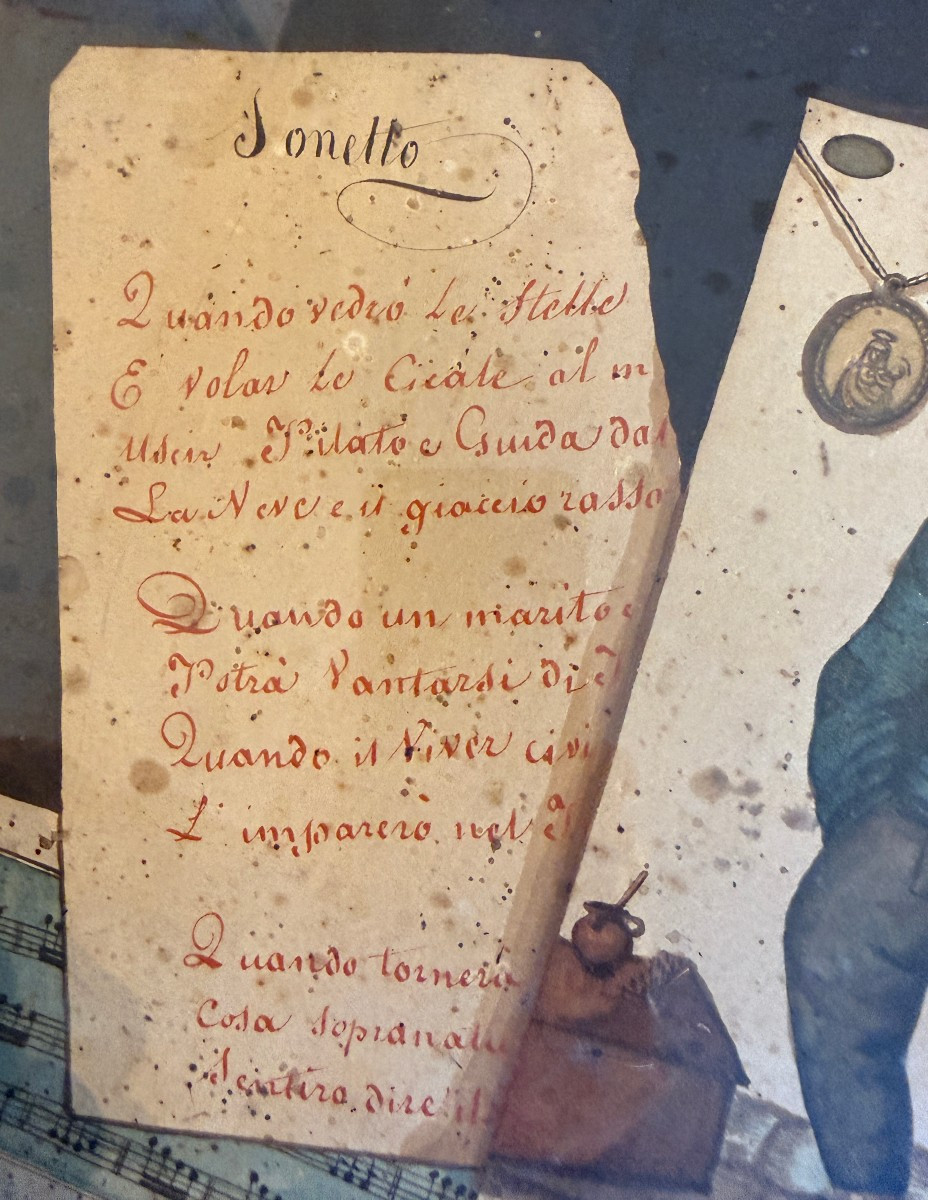 Sonetto
Quando vedrò le Stelle
E volar le Cicale al m
Uscir Pilato e Giuda dal
La Neve e il giaccio rasso
Quando un marito e
Potrà Vantarsi di
Quando il Viver civi
L' imparerò nel
Quando tornerà
Cosa sopranatu
Sentiro dire il